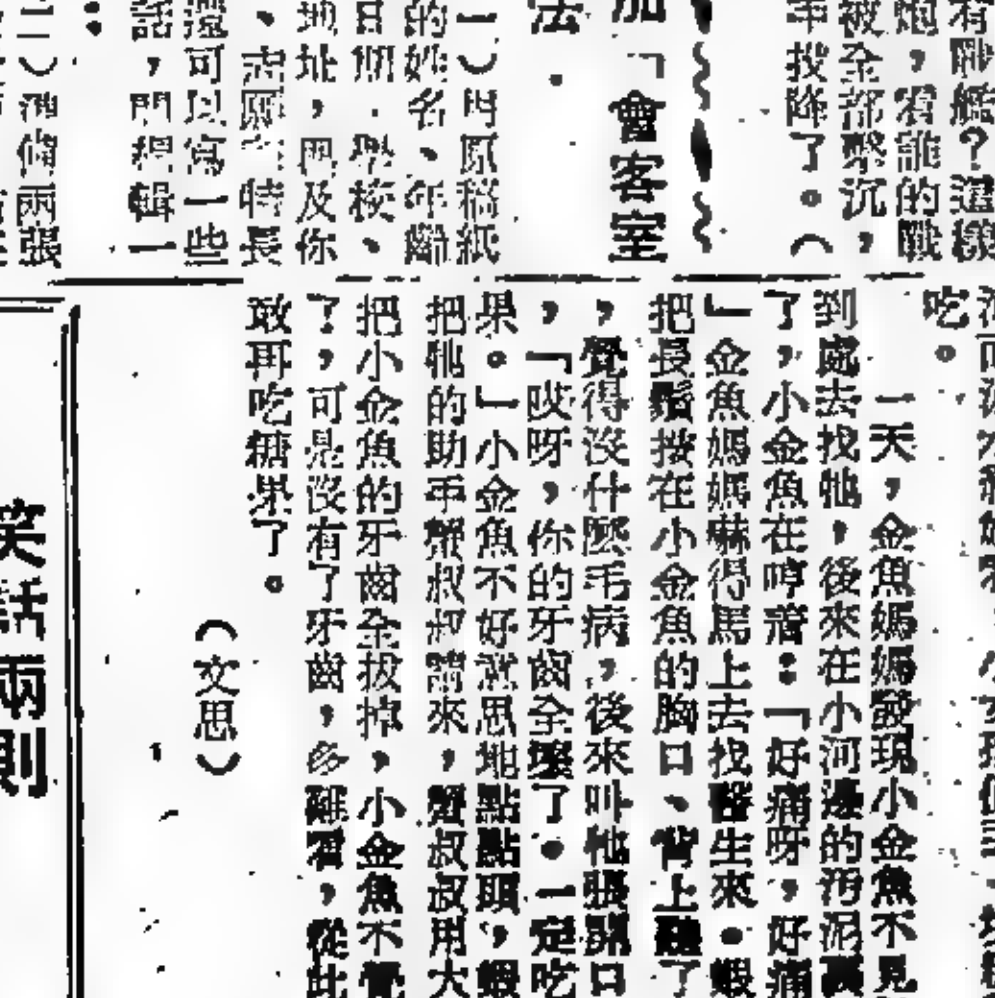 有戰艦？這樣
炮，看誰的戰
被全部擊沉，
手投降了。（
加「會客室
法
一）用原稿紙
的姓名、年齡
日期．學校、
地址，興及你
、志願、特長
還可以寫一些
話，門提輯一
二）準備兩張
吃。
一天，金魚媽媽發現小金魚不見
到處去找牠，後來在小河邊的污泥裏
了，小金魚在哼着：「好痛呀，好痛
」金魚媽媽嚇得馬上去找醫生來．蝦
把長鬚按在小金魚的胸口、背上聽了
，覺得沒什麼毛病，後來叫牠張開口
，「哎呀，你的牙齒全壞了．一定吃
果。」小金魚不好意思地點點頭，蝦
把牠的助手蟹叔叔請來，蟹叔叔用大
把小金魚的牙齒全拔掉，小金魚不覺
了，可是沒有了牙齒，多難看，從此
敢再吃糖果了。
（文思）
笑話兩則